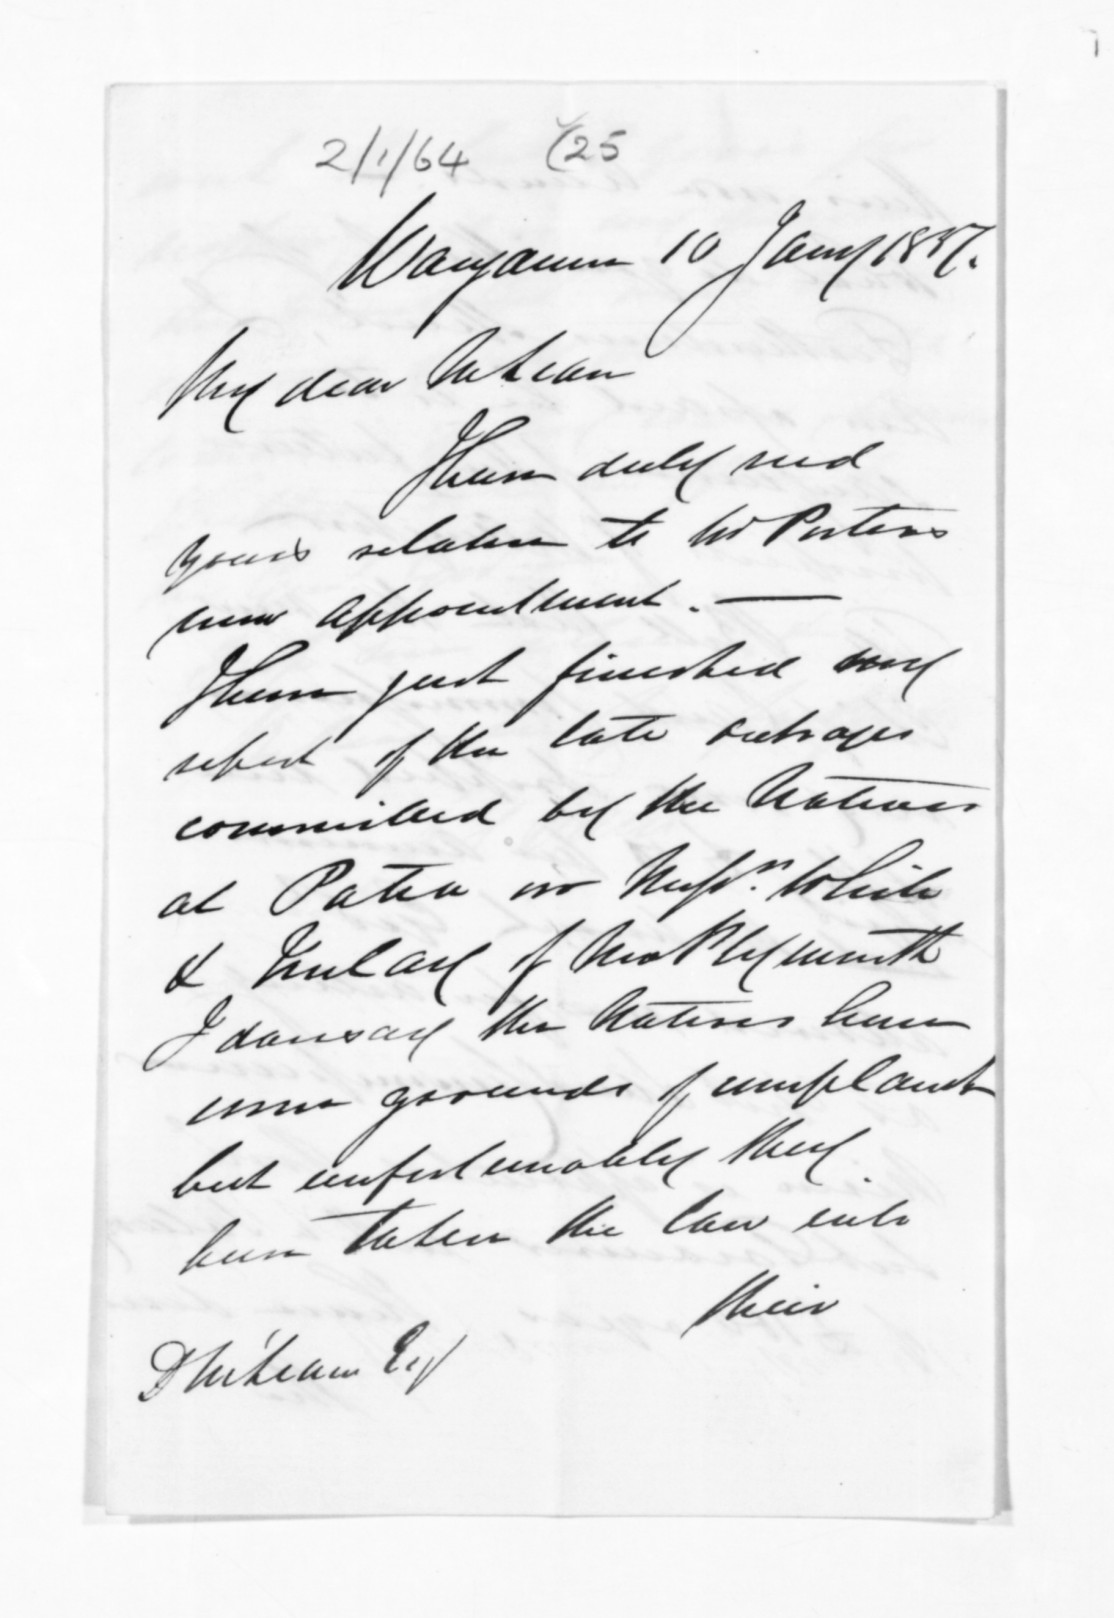 2/1/64 (25
Wanganui 10 Jany 1857.
My dear McLean
I have duly recd
yours relative to Mr Porters
new appointment. —
I have just finished my
report of the late outrages
committed by the Natives
at Patea on Messrs. White
& of New Plymouth
I daresay the Natives have
some grounds of complaint
but unfortunately they
have taken the law into
their
D McLean Esq